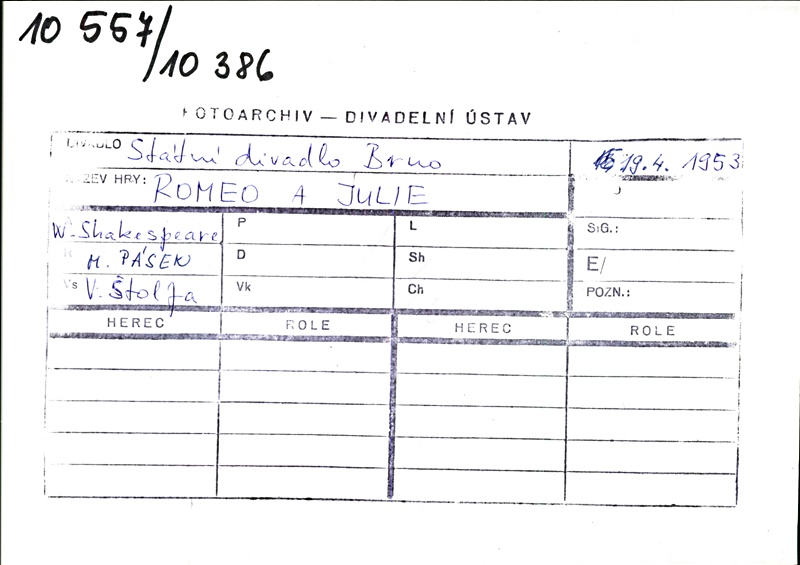 10 557/
10 386
FOTOARCHIV — DIVADELNÍ ÚSTAV
DIVADLO Státní divadlo Brno 19.4. 1953
NÁZEV HRY: ROMEO A JULIE
W. Shakespeare P L SIG.:
R M. PÁSEK D Sh E/
Vs V. Štolfa Vk Ch POZN.:
HEREC ROLE HEREC ROLE